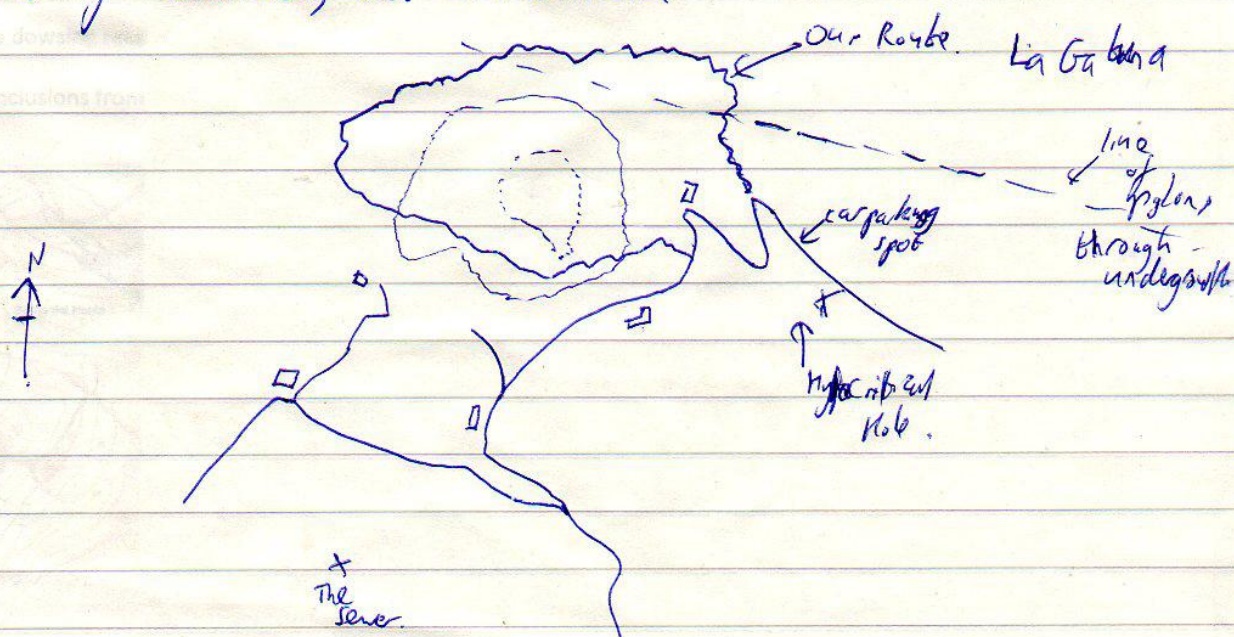 Our Route.
La Gatuna
line
of
pylons
through
undergrowth
car parking
spot
N
Hypocritical
Hole.
The
Sewer.